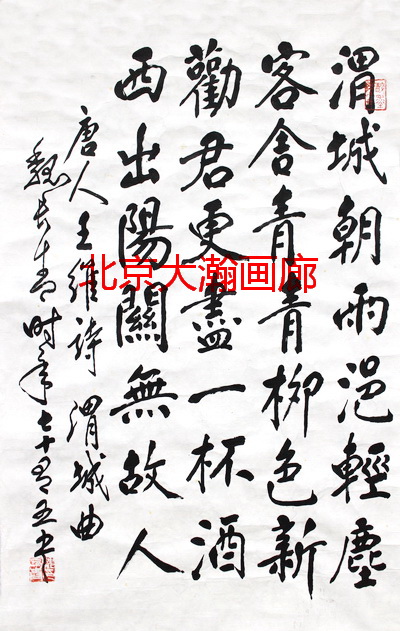 渭城朝雨浥輕塵
客舍青青柳色新
勸君更盡一杯酒
西出陽關無故人
唐人王維詩 渭城曲
魏長青時年七十有五书
北京大瀚画廊